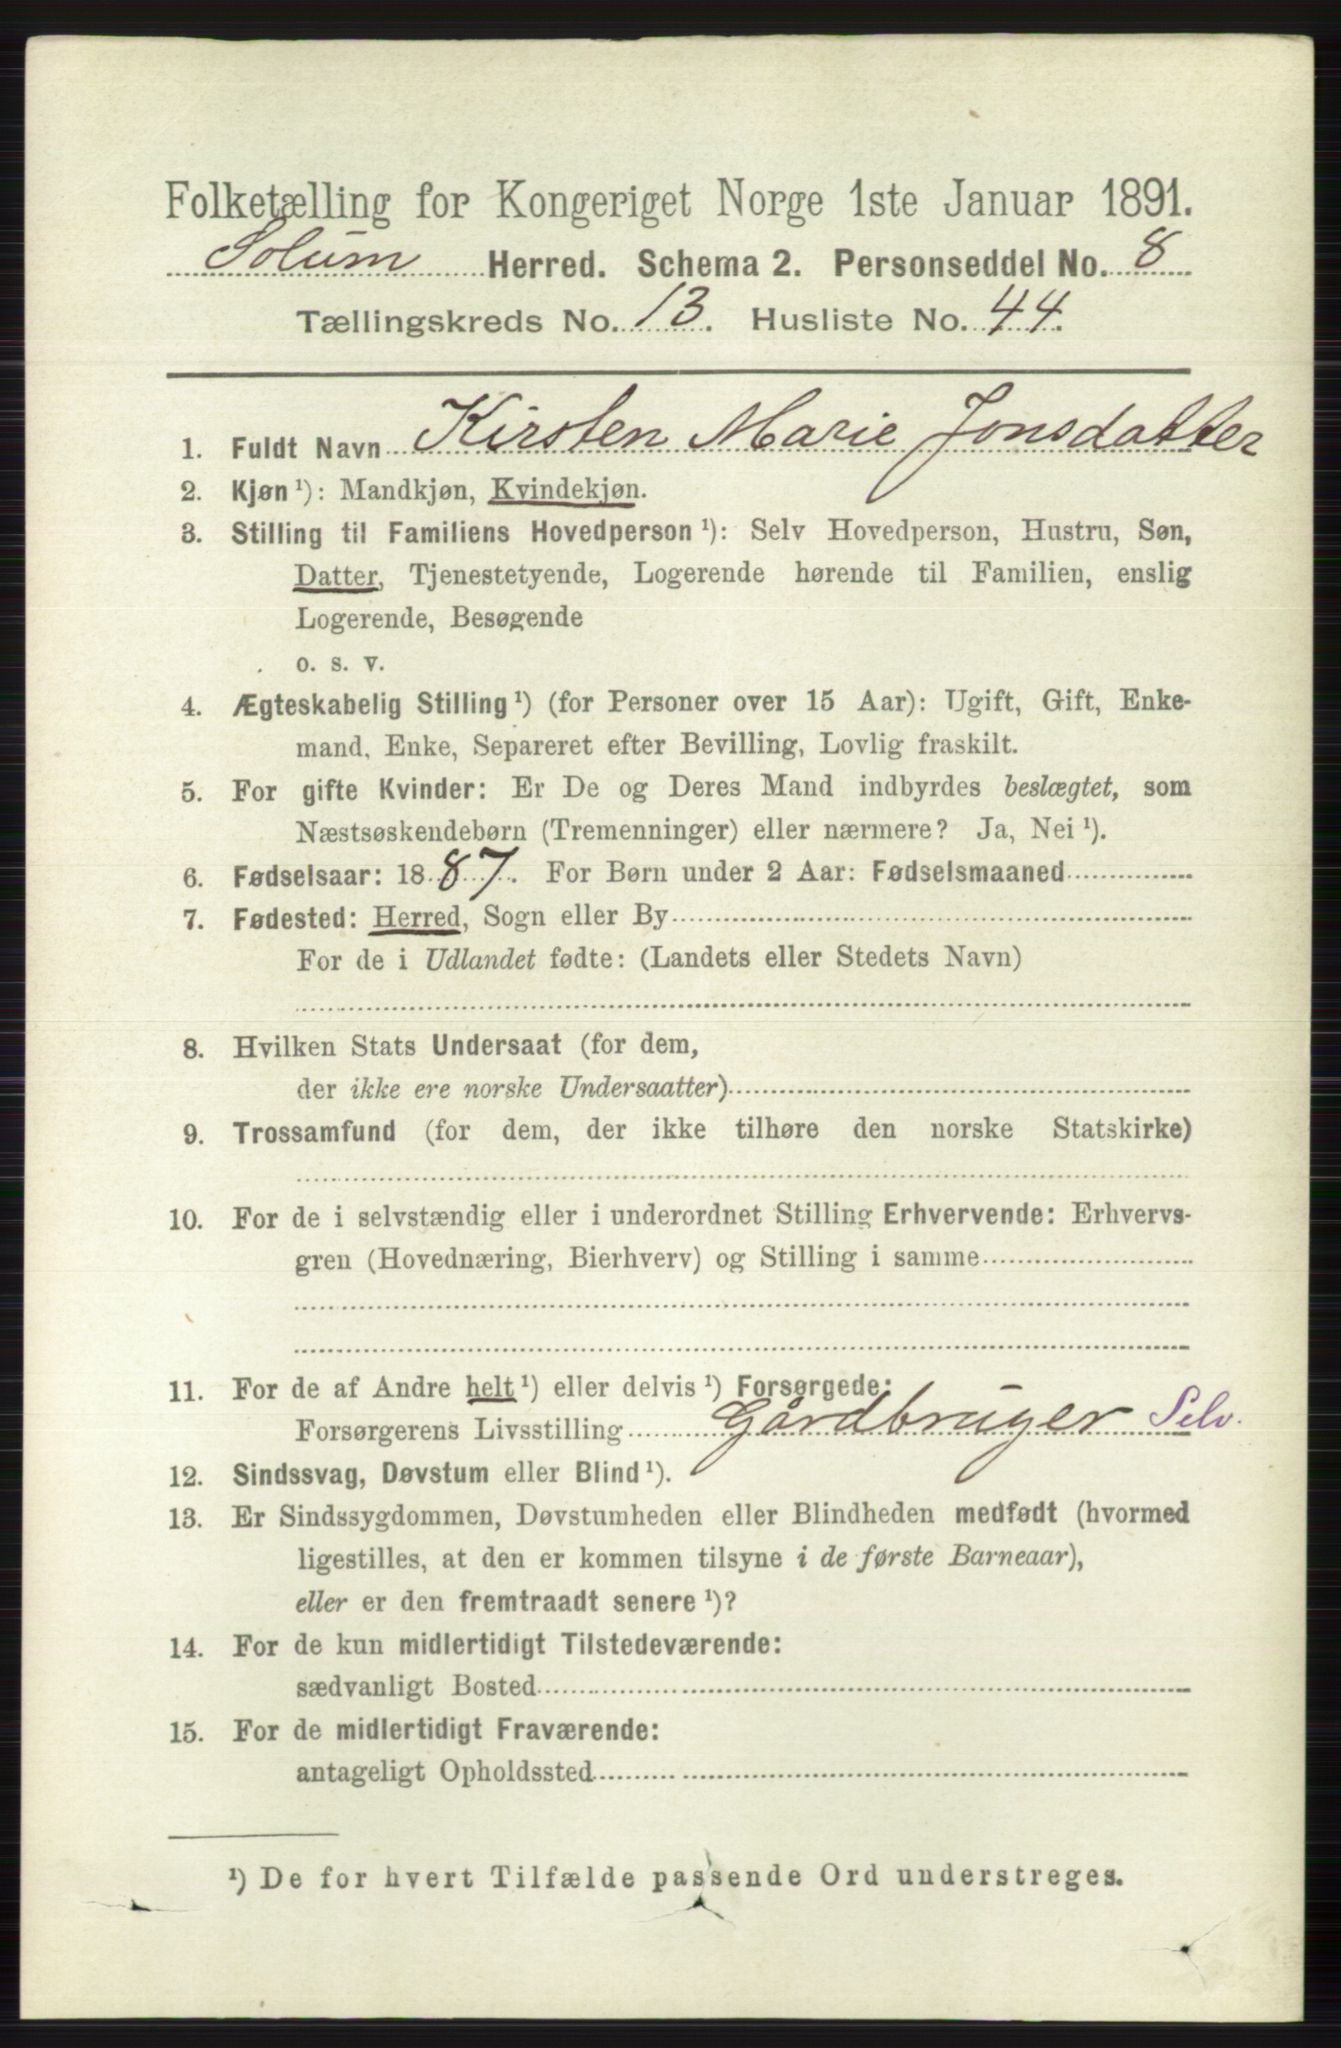 Folketælling for Kongeriget Norge 1ste Januar 1891.
Solum Herred. Schema 2. Personseddel No. 8
Tællingskreds No. 13. Husliste No. 44.
1. Fuldt Navn Kirsten Marie Jonsdatter
2. Kjøn ¹): Mandkjøn, Kvindekjøn.
3. Stilling til Familiens Hovedperson ¹): Selv Hovedperson, Hustru, Søn,
Datter, Tjenestetyende, Logerende hørende til Familien, enslig
Logerende, Besøgende
o. s. v.
4. Ægteskabelig Stilling ¹) (for Personer over 15 Aar): Ugift, Gift, Enke-
mand, Enke, Separeret efter Bevilling, Lovlig fraskilt.
5. For gifte Kvinder: Er De og Deres Mand indbyrdes beslægtet, som
Næstsøskendebørn (Tremenninger) eller nærmere? Ja, Nei ¹).
6. Fødselsaar: 1887. For Børn under 2 Aar: Fødselsmaaned
7. Fødested: Herred, Sogn eller By
For de i Udlandet fødte: (Landets eller Stedets Navn)
8. Hvilken Stats Undersaat (for dem,
der ikke ere norske Undersaatter)
9. Trossamfund (for dem, der ikke tilhøre den norske Statskirke)
10. For de i selvstændig eller i underordnet Stilling Erhvervende: Erhvervs-
gren (Hovednæring, Bierhverv) og Stilling i samme
11. For de af Andre helt ¹) eller delvis ¹) Forsørgede:
Forsørgerens Livsstilling Gårdbruger Selv.
12. Sindssvag, Døvstum eller Blind ¹).
13. Er Sindssygdommen, Døvstumheden eller Blindheden medfødt (hvormed
ligestilles, at den er kommen tilsyne i de første Barneaar),
eller er den fremtraadt senere ¹)?
14. For de kun midlertidigt Tilstedeværende:
sædvanligt Bosted
15. For de midlertidigt Fraværende:
antageligt Opholdssted
¹) De for hvert Tilfælde passende Ord understreges.